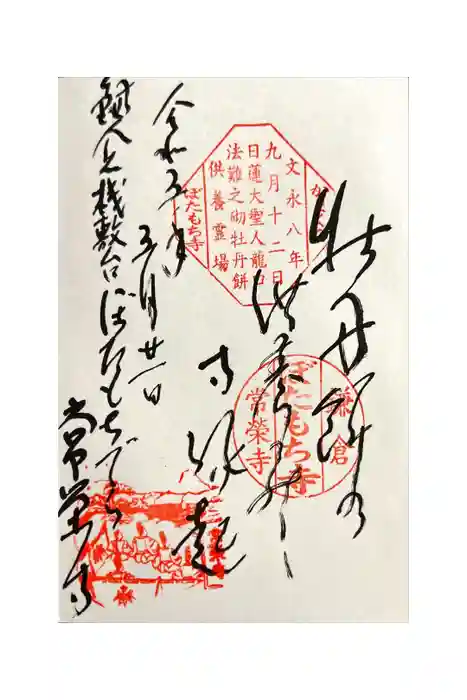 牡丹餅の
供養
寺縁起
文永八年
九月十二日
日蓮大聖人龍口
法難之砌牡丹餅
供養霊場
ぼたもち寺
鎌倉
ぼたもち寺
常榮寺
令和
五月廿一日
桟敷台ぼたもちでら
常栄寺